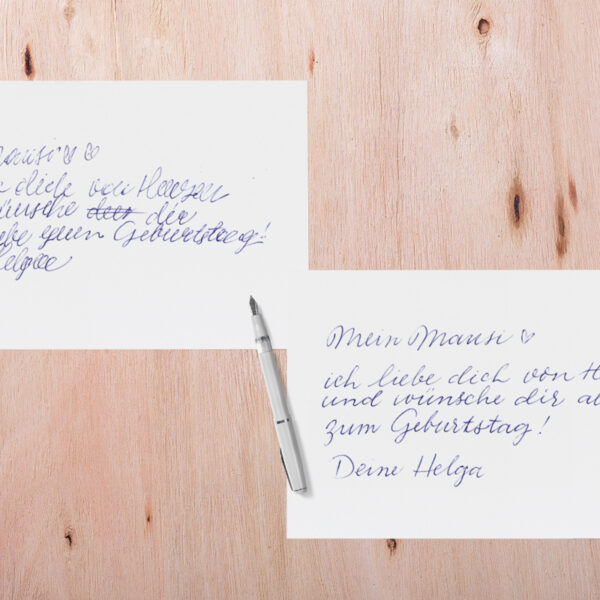 ausi
dich von Herzen
ünsche dir
Geburtstag!
elga
Mein Mausi ♡
ich liebe dich von H
und wünsche dir al
zum Geburtstag!
Deine Helga